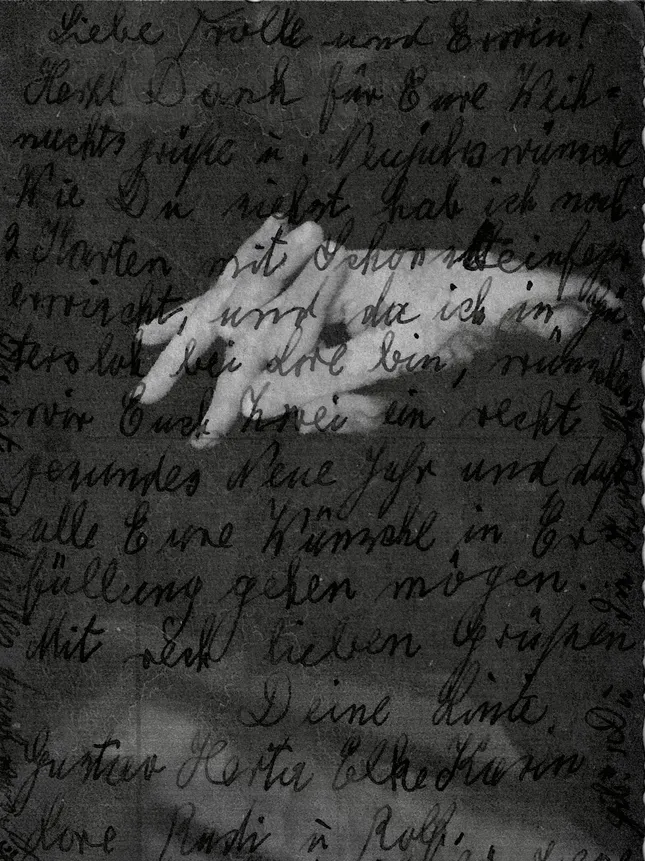 Liebe Trolle und Erwin!
Herzl Dank für Eure Weih-
nachts grüße u. Neujahrswünsche
Wie Du siehst hab ich noch
2 Karten mit Schornsteinfegern
erwischt, und da ich in Gü-
tersloh bei Lore bin, wünschen
wir Euch zwei ein recht
gesundes Neue Jahr und daß
alle Eure Wünsche in Er-
füllung gehen mögen.
Mit recht lieben Grüßen
Deine
Gustav Herta Elke Karin
Lore Rudi u Rolf.